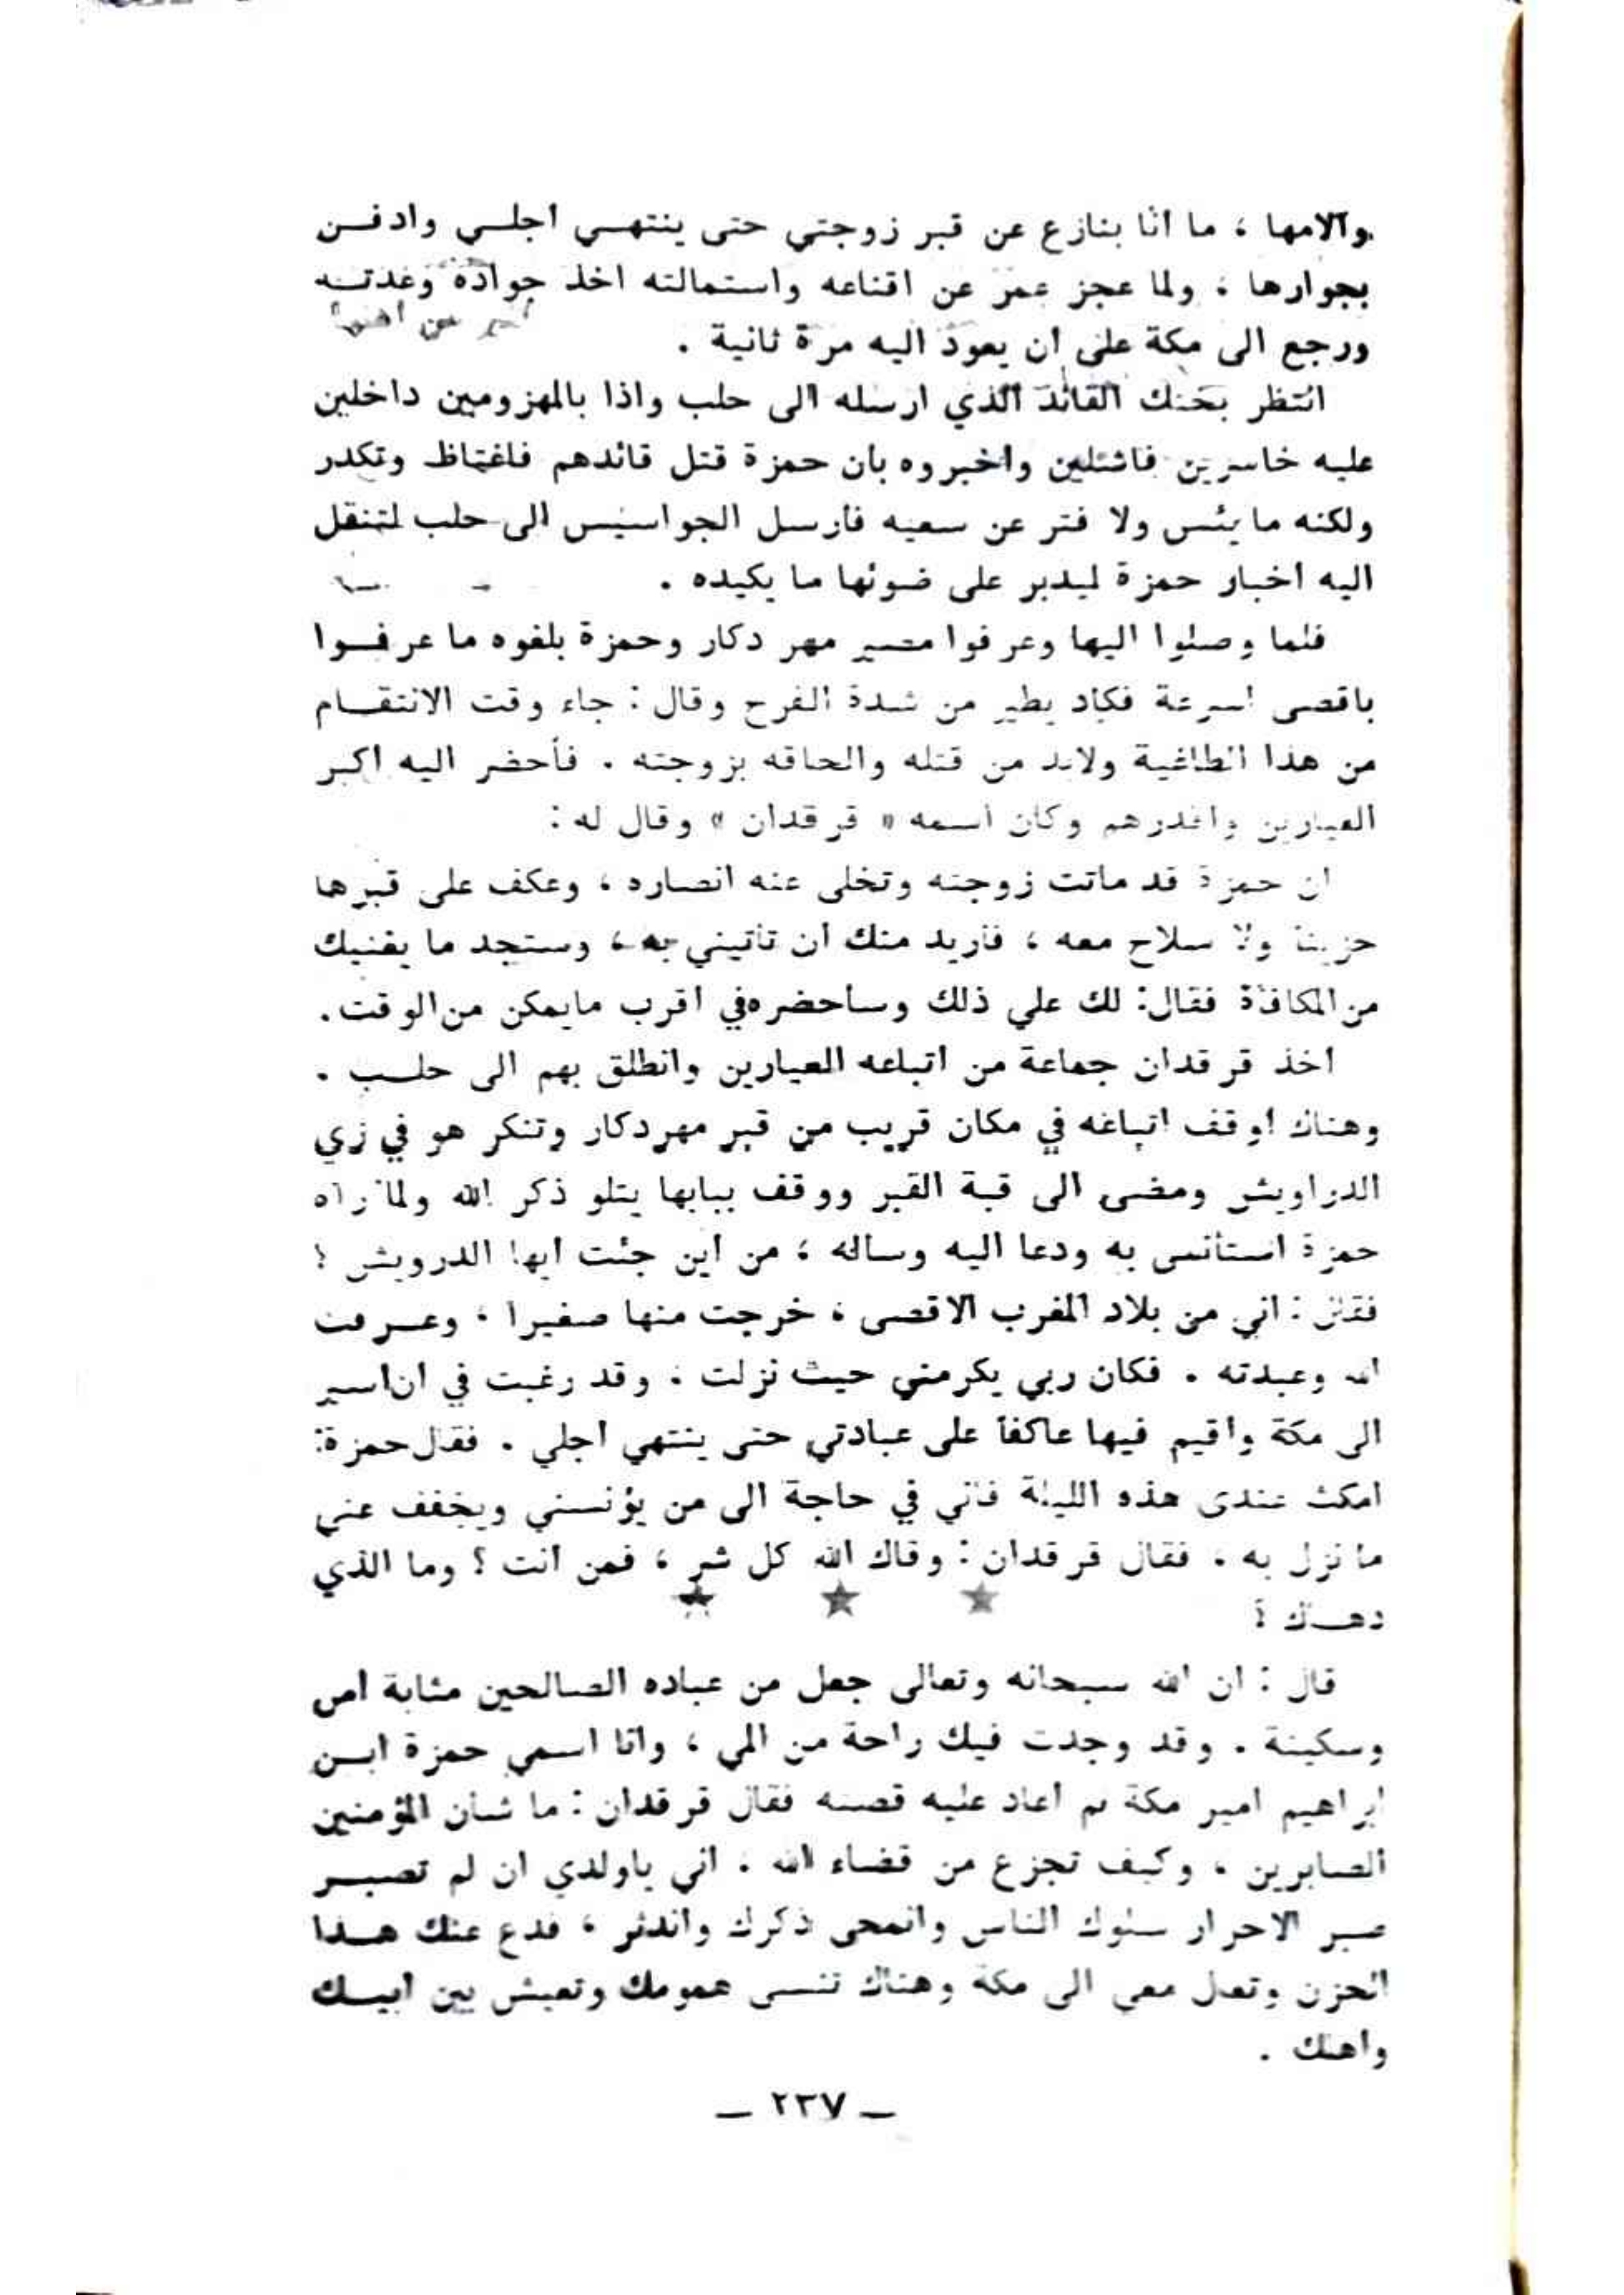 وآلامها ؛ ما انا بنازع عن قبر زوجتي حتى ينتهـي اجلـي وادفـن
بجوارها ؛ ولما عجز عمر عن اقناعه واستمالته اخذ جواده وعدتـه
ورجع الى مكة على ان يعود اليه مرة ثانية .
انتظر بختك القائد الذي ارسله الى حلب واذا بالمهزومين داخلين
عليه خاسرين فاشلين واخبروه بان حمزة قتل قائدهم فاغتاظ وتكدر
ولكنه ما يئس ولا فتر عن سعيه فارسل الجواسيس الى حلب لتنقل
اليه اخبار حمزة ليدبر على ضوئها ما يكيده .
فلما وصلوا اليها وعرفوا مصير مهر دكار وحمزة بلغوه ما عرفـوا
باقصى سرعة فكاد يطير من شدة الفرح وقال : جاء وقت الانتقـام
من هذا الطاغية ولابد من قتله والحاقه بزوجته . فأحضر اليه اكبر
العيارين واقدرهم وكان اسمه « قرقدان » وقال له :
ان حمزة قد ماتت زوجته وتخلى عنه انصاره ، وعكف على قبرها
حزينا ولا سلاح معه ، فأريد منك أن تأتيني به ، وستجد ما يغنيك
من المكافأة فقال: لك علي ذلك وسأحضره في اقرب مايمكن من الوقت.
اخذ قرقدان جماعة من اتباعه العيارين وانطلق بهم الى حلـب .
وهناك اوقف اتباعه في مكان قريب من قبر مهردكار وتنكر هو في زي
الدراويش ومضى الى قبة القبر ووقف ببابها يتلو ذكر الله ولما رآه
حمزة استأنس به ودعا اليه وساله ؛ من اين جئت ايها الدرويش ؟
فقال : اني من بلاد المغرب الاقصى ، خرجت منها صغيرا ، وعـرفت
الله وعبدته . فكان ربي يكرمني حيث نزلت . وقد رغبت في ان اسير
الى مكة واقيم فيها عاكفا على عبادتي حتى ينتهي اجلي . فقال حمزة:
امكث عندي هذه الليلة فاني في حاجة الى من يؤنسني ويخفف عني
ما نزل به . فقال قرقدان : وقاك الله كل شر ، فمن انت ؟ وما الذي
دهـاك ؟
★ ★ ★
قال : ان الله سبحانه وتعالى جعل من عباده الصالحين مثابة امن
وسكينة . وقد وجدت فيك راحة من المي ، وانا اسمي حمزة ابـن
ابراهيم امير مكة ثم أعاد عليه قصته فقال قرقدان : ما شأن المؤمنين
الصابرين ، وكيف تجزع من قضاء الله . اني ياولدي ان لم تصبـر
صبر الاحرار سلوك الناس وانمحى ذكرك واندثر ، فدع عنك هـذا
الحزن وتعال معي الى مكة وهناك تنسى همومك وتعيش بين ابيـك
واهلك .
— ٢٣٧ —